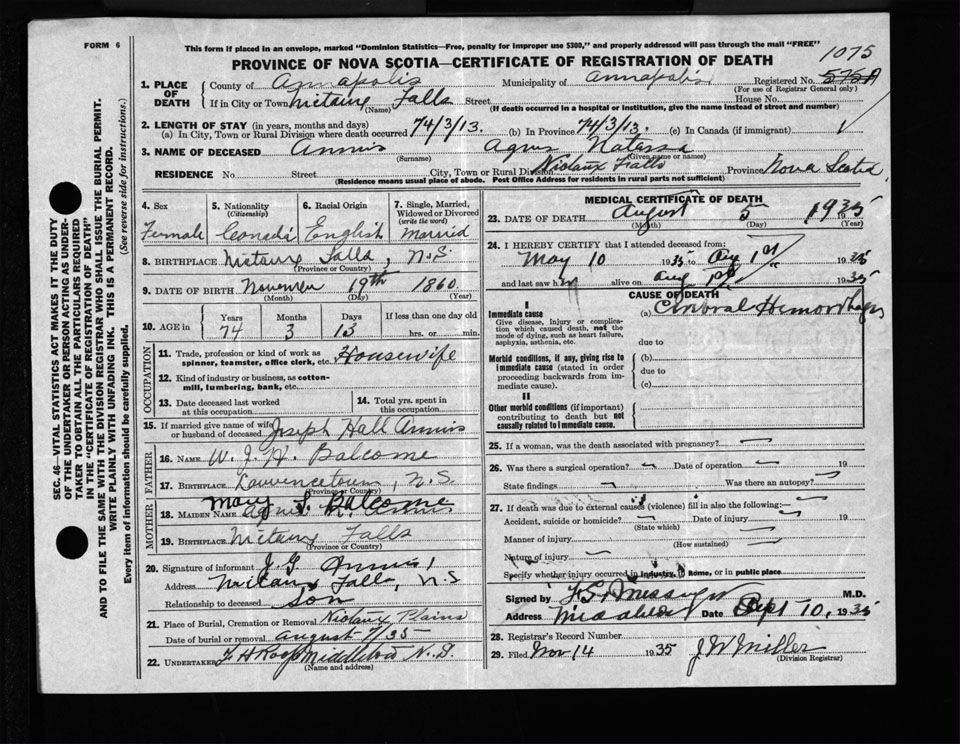 FORM 6
This form if placed in an envelope, marked "Dominion Statistics—Free, penalty for improper use $300," and properly addressed will pass through the mail "FREE"
1075
PROVINCE OF NOVA SCOTIA—CERTIFICATE OF REGISTRATION OF DEATH
1. PLACE OF DEATH
County of Annapolis Municipality of Annapolis Registered No.
(For use of Registrar General only)
If in City or Town Nictaux Falls Street House No.
(Name) (If death occurred in a hospital or institution, give the name instead of street and number)
2. LENGTH OF STAY (in years, months and days)
(a) In City, Town or Rural Division where death occurred 74/3/13. (b) In Province 74/3/13. (c) In Canada (if immigrant)
3. NAME OF DECEASED Annis Agnes
(Surname) (Given name or names)
RESIDENCE No Street City, Town or Rural Division Nictaux Falls Province Nova Scotia
(Residence means usual place of abode. Post Office Address for residents in rural parts not sufficient)
4. Sex 5. Nationality (Citizenship) 6. Racial Origin 7. Single, Married, Widowed or Divorced (write the word)
Female Canada English Married
8. BIRTHPLACE Nictaux Falls, N.S.
(Province or Country)
9. DATE OF BIRTH November 19th 1860
(Month) (Day) (Year)
10. AGE in Years Months Days If less than one day old
74 3 13 hrs. or min.
OCCUPATION
11. Trade, profession or kind of work as spinner, teamster, office clerk, etc. Housewife
12. Kind of industry or business, as cotton-mill, lumbering, bank, etc.
13. Date deceased last worked at this occupation
14. Total yrs. spent in this occupation
15. If married give name of wife or husband of deceased Joseph Hall Annis
FATHER
16. NAME W. J. H. Balcome
17. BIRTHPLACE Lawrencetown, N.S.
(Province or Country)
MOTHER
18. MAIDEN NAME Mary Balcome
19. BIRTHPLACE Nictaux Falls
(Province or Country)
20. Signature of informant J. G. Annis
Address Nictaux Falls, N.S
Relationship to deceased Son
21. Place of Burial, Cremation or Removal Nictaux Plains
Date of burial or removal August 7/35
22. UNDERTAKER F H Roop Middleton N.S.
(Name and address)
MEDICAL CERTIFICATE OF DEATH
23. DATE OF DEATH August 5 1935
(Month) (Day) (Year)
24. I HEREBY CERTIFY that I attended deceased from:
May 10 1935 to Aug 1st 1935
and last saw her alive on Aug 1st 1935
CAUSE OF DEATH
I
Immediate cause (a) Cerebral Hemorrhage
Give disease, injury or complication which caused death, not the mode of dying, such as heart failure, asphyxia, asthenia, etc.
due to
Morbid conditions, if any, giving rise to immediate cause (stated in order proceeding backwards from immediate cause).
(b)
due to
(c)
II
Other morbid conditions (if important) contributing to death but not causally related to immediate cause.
25. If a woman, was the death associated with pregnancy?
26. Was there a surgical operation? Date of operation 19
State findings Was there an autopsy?
27. If death was due to external causes (violence) fill in also the following:
Accident, suicide or homicide? Date of injury 19
(State which)
Manner of injury
(How sustained)
Nature of injury
Specify whether injury occurred in industry, in home, or in public place
Signed by M.D.
Address Date Sept 10, 1935
28. Registrar's Record Number
29. Filed Nov 14 1935 J W Miller
(Division Registrar)
SEC. 46—VITAL STATISTICS ACT MAKES IT THE DUTY
OF THE UNDERTAKER OR PERSON ACTING AS UNDER-
TAKER TO OBTAIN ALL THE PARTICULARS REQUIRED
IN THE "CERTIFICATE OF REGISTRATION OF DEATH"
AND TO FILE THE SAME WITH THE DIVISION REGISTRAR WHO SHALL ISSUE THE BURIAL PERMIT.
WRITE PLAINLY WITH UNFADING INK. THIS IS A PERMANENT RECORD.
Every item of information should be carefully supplied. (See reverse side for instructions.)